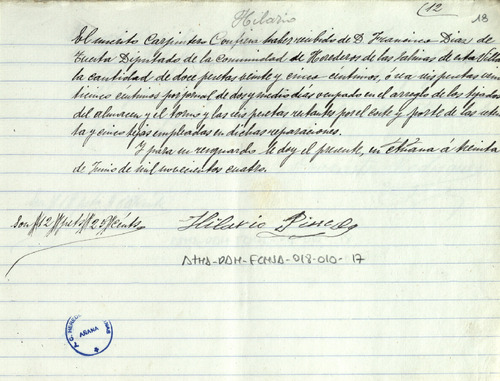 Hilario
(12
18
El infrascrito Carpintero Confiesa haber recibido de D. Francisco Diaz de
Tuesta Diputado de la Comunidad de Herederos de las Salinas de esta Villa
la cantidad de doce pesetas veinte y cinco centimos, ó sea seis pesetas
veinticinco centimos por jornal de dos y medio dias ocupado en el arreglo de los tejados
del almacen y el torno y las seis pesetas restantes por el coste y porte de las
y cinco tejas empleadas en dichas reparaciones.
Y para su resguardo le doy el presente, en Añana á treinta
de Junio de mil novecientos cuatro.
Son //12// pets //25// cents
Hilario Pinedo
ATHA-DAH-FCHSA-018-010-17
AÑANA